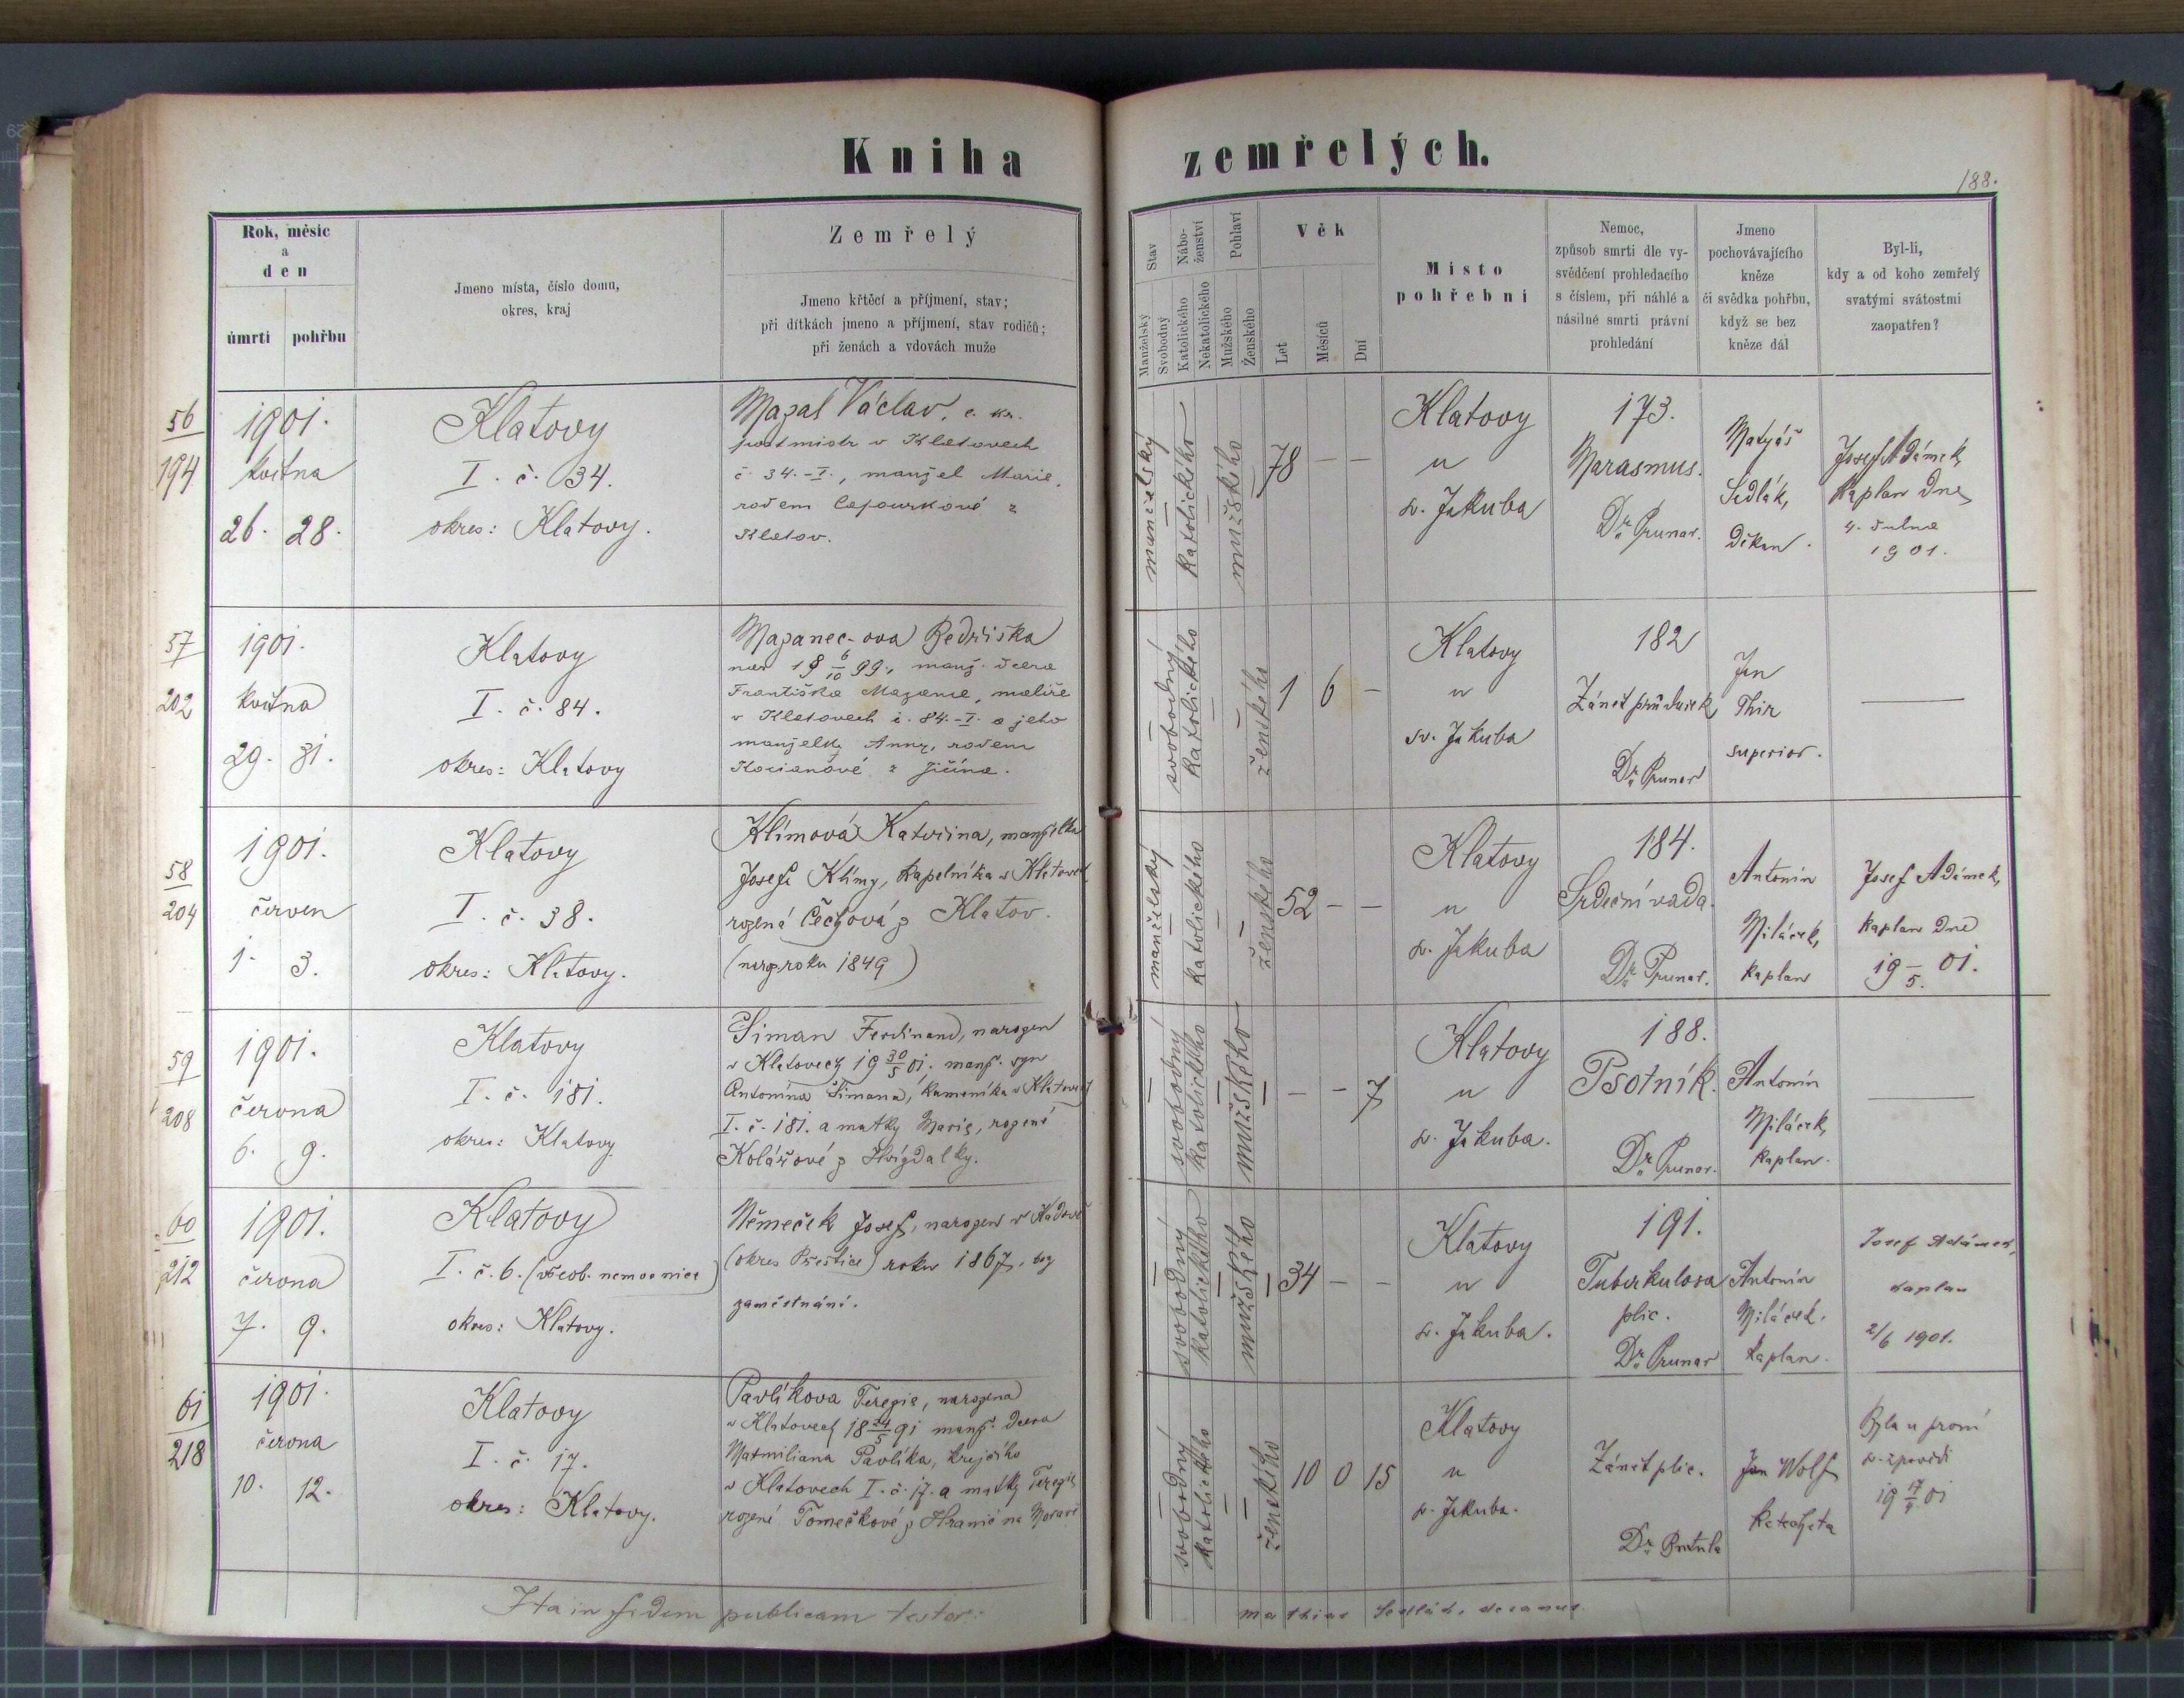 Kniha zemřelých.
188.
Rok, měsíc
a
den
úmrtí pohřbu
Jmeno místa, číslo domu,
okres, kraj
Zemřelý
Jmeno křtěcí a příjmení, stav;
při dítkách jmeno a příjmení, stav rodičů;
při ženách a vdovách muže
Stav
Manželský
Svobodný
Nábo-
ženství
Katolického
Nekatolického
Pohlaví
Mužského
Ženského
Věk
Let
Měsíců
Dní
Místo
pohřební
Nemoc,
způsob smrti dle vy-
svědčení prohledacího
s číslem, při náhlé a
násilné smrti právní
prohledání
Jmeno
pochovávajícího
kněze
či svědka pohřbu,
když se bez
kněze dál
Byl-li,
kdy a od koho zemřelý
svatými svátostmi
zaopatřen?
56
194
1901.
května
26. 28.
Klatovy
I. č. 34.
okres: Klatovy.
Mazal Václav, c. kr.
postmistr v Klatovech
č. 34.-I., manžel Marie,
rodem Cepourkové z
Klatov.
manželský
katolického
mužského
78 — —
Klatovy
u
sv. Jakuba
173.
Marasmus.
Dr. Prunar.
Matyáš
Sedlák,
děkan.
Josef Adámek,
kaplan dne
4. dubna
1901.
57
202
1901.
května
29. 31.
Klatovy
I. č. 84.
okres: Klatovy
Mazanec-ova Bedřiška
nar 18 6/10 99., manž. dcera
Františka Mazance, malíře
v Klatovech č. 84.-I. a jeho
manželky Anny, rodem
Kocianové z Jičína.
svobodný
katolického
ženského
1 6 —
Klatovy
u
sv. Jakuba
182
Zánět průdušek
Dr. Prunar
Jan
Thir
superior.
—
58
204
1901.
červen
1. 3.
Klatovy
I. č. 38.
okres: Klatovy.
Klímová Kateřina, manželka
Josefa Klímy, kapelníka v Klatovech,
rozená Čechová z Klatov.
(naroz. roku 1849)
manželský
katolického
ženského
52 — —
Klatovy
u
sv. Jakuba
184.
Srdeční vada.
Dr. Prunar.
Antonín
Miláček,
kaplan
Josef Adámek,
kaplan dne
19 — 5. 01.
59
208
1901.
června
6. 9.
Klatovy
I. č. 181.
okres: Klatovy
Šiman Ferdinand, narozen
v Klatovech 19 30/5 01. manž. syn
Antonína Šimana, kameníka v Klatovech
I. č. 181. a matky Marie, rozené
Kolářové z
svobodný
katolického
mužského
— — 7
Klatovy
u
sv. Jakuba.
188.
Psotník.
Dr. Prunar.
Antonín
Miláček,
kaplan.
—
60
212
1901.
června
7. 9.
Klatovy
I. č. 6. (všeob. nemocnice)
okres: Klatovy.
Němeček Josef, narozen v
(okres Přeštice) roku 1867, bez
zaměstnání.
svobodný
katolického
mužského
34 — —
Klatovy
u
sv. Jakuba.
191.
Tuberkulosa
plic.
Dr. Prunar
Antonín
Miláček,
kaplan.
Josef Adámek,
kaplan
2/6 1901.
61
218
1901.
června
10. 12.
Klatovy
I. č. 17.
okres: Klatovy.
Pavlíkova Terezie, narozena
v Klatovech 18 24/5 91 manž. dcera
Maxmiliana Pavlíka, krejčího
v Klatovech I. č. 17. a matky Terezie
rozené Tomečkové z Hranic na Moravě
svobodný
katolického
ženského
10 0 15
Klatovy
u
sv. Jakuba.
Zánět plic.
Dr.
Jan Wolf
katecheta
Byla u první
sv. zpovědi
Ita in fidem publicam testor:
Mathias Sedlák, decanus.